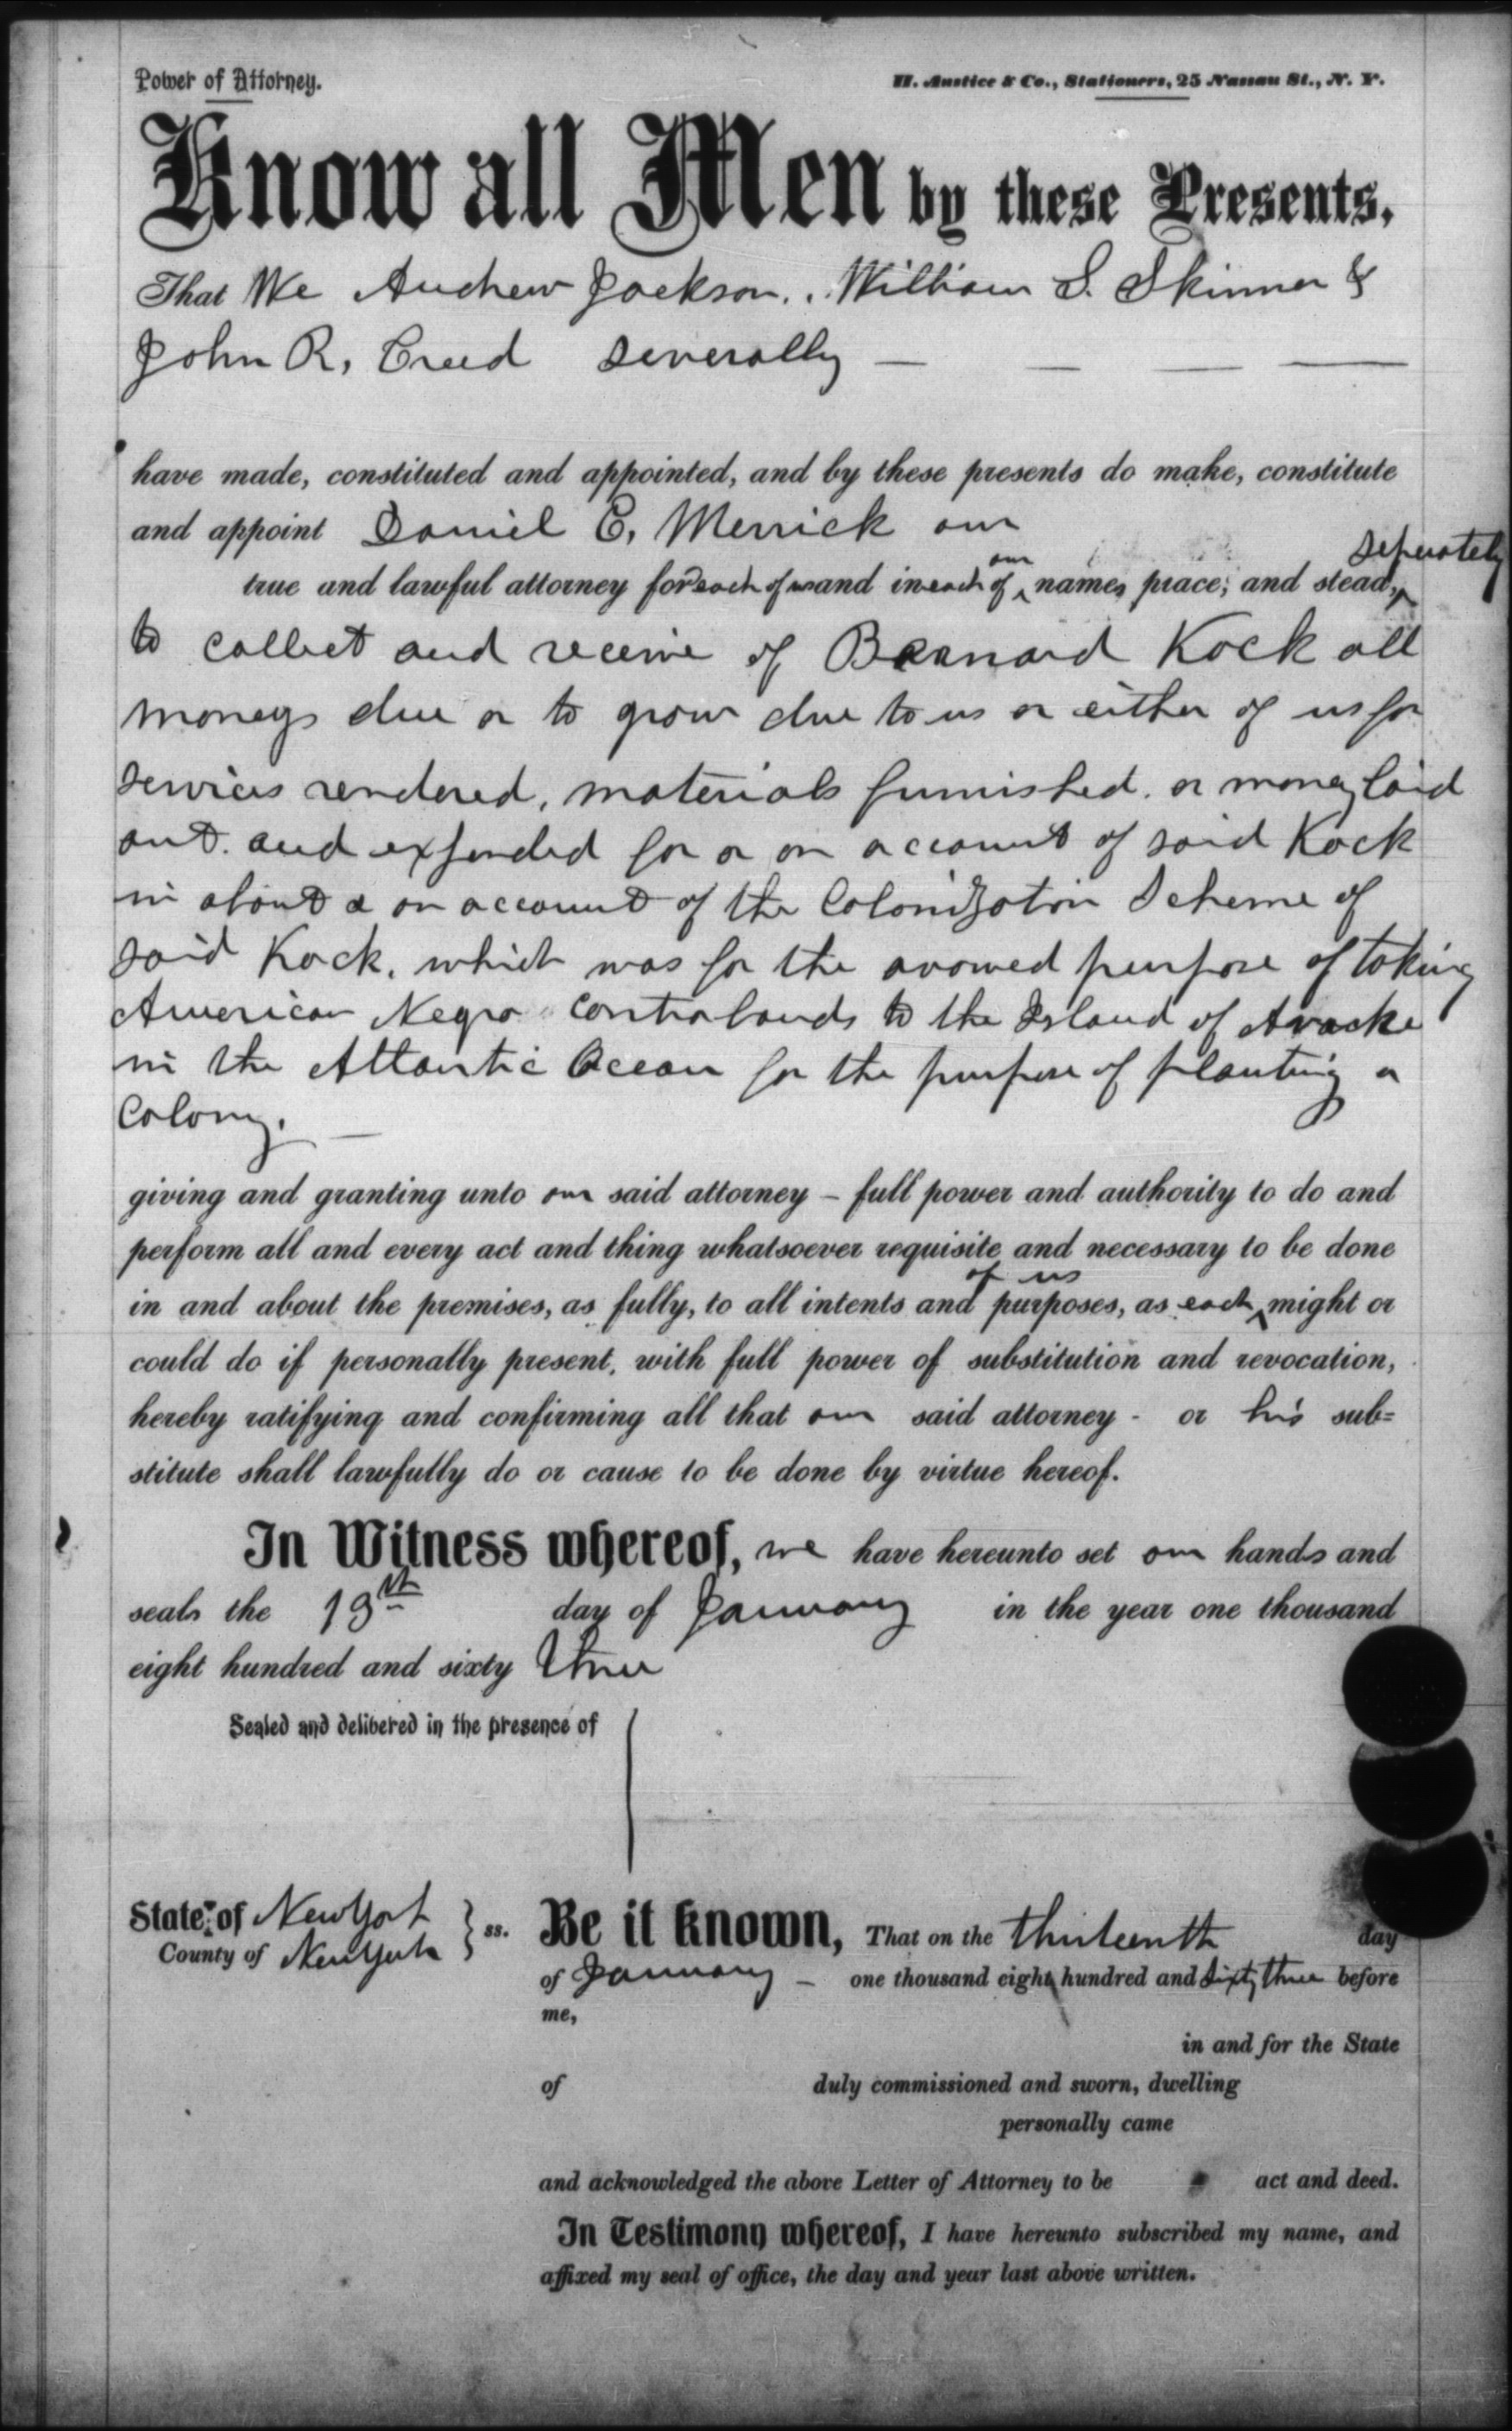 Power of Attorney.
H. Anstice & Co., Stationers, 25 Nassau St., N. Y.
Know all Men by these Presents,
That We Andrew Jackson, William S. Skinner &
John R. Creed severally
have made, constituted and appointed, and by these presents do make, constitute
and appoint Daniel C. Merrick our
true and lawful attorney for each of us and in each of our names place, and stead, seperately
to collect and receive of Bernard Kock all
moneys due or to grow due to us or either of us for
services rendered, materials furnished. or money laid
out. and expended for or on account of said Kock
in about & on account of the Colonization Scheme of
said Kock, which was for the avowed purpose of taking
American Negro Contrabands to the Island of Avacke
in the Atlantic Ocean for the purpose of planting a
Colony.
giving and granting unto our said attorney – full power and authority to do and
perform all and every act and thing whatsoever requisite and necessary to be done
in and about the premises, as fully, to all intents and purposes, as each of us might or
could do if personally present, with full power of substitution and revocation,
hereby ratifying and confirming all that our said attorney - or his sub=
stitute shall lawfully do or cause to be done by virtue hereof.
In Witness whereof, we have hereunto set our hands and
seals the 13th day of January in the year one thousand
eight hundred and sixty three
Sealed and delivered in the presence of
State of New York
County of New York } ss.
Be it known, That on the thirteenth day
of January – one thousand eight hundred and Sixty three before
me,
in and for the State
of duly commissioned and sworn, dwelling
personally came
and acknowledged the above Letter of Attorney to be act and deed.
In Testimony whereof, I have hereunto subscribed my name, and
affixed my seal of office, the day and year last above written.